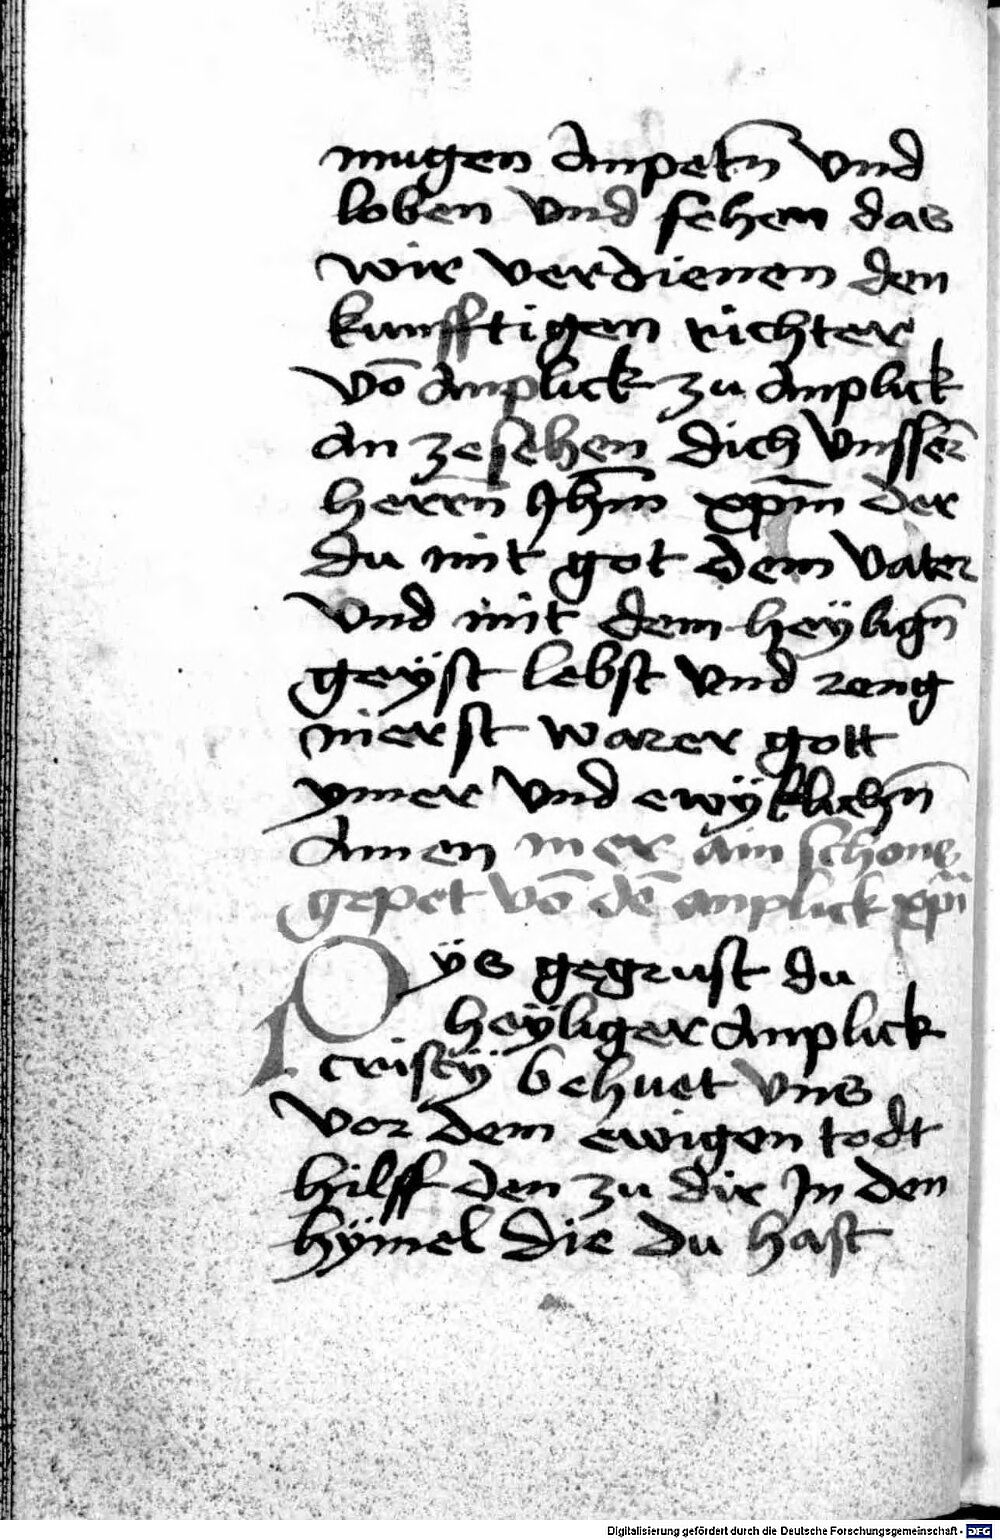 mugen Anpetn̄ vnd
loben vnd sehen das
wir verdienen den
kunfftigen richter
vō Anplick zu Anplick
an zesehen dich vnsser
herrn̄ Jhm̄ xp̄m der
du mit got dem vater
vnd mit dem heÿlign̄
geÿst lebst vnd reng
nierst warer gott
ymer vnd ewÿklichn̄
Amen mer ain schons
gepet vō dē anplick xp̄i
Pÿs gegrust du
heÿliger Anplick
cristÿ behuet vns
vor dem ewigen todt
hilff den zu dir In den
hÿmel die du hast
Digitalisierung gefördert durch die Deutsche Forschungsgemeinschaft - DFG